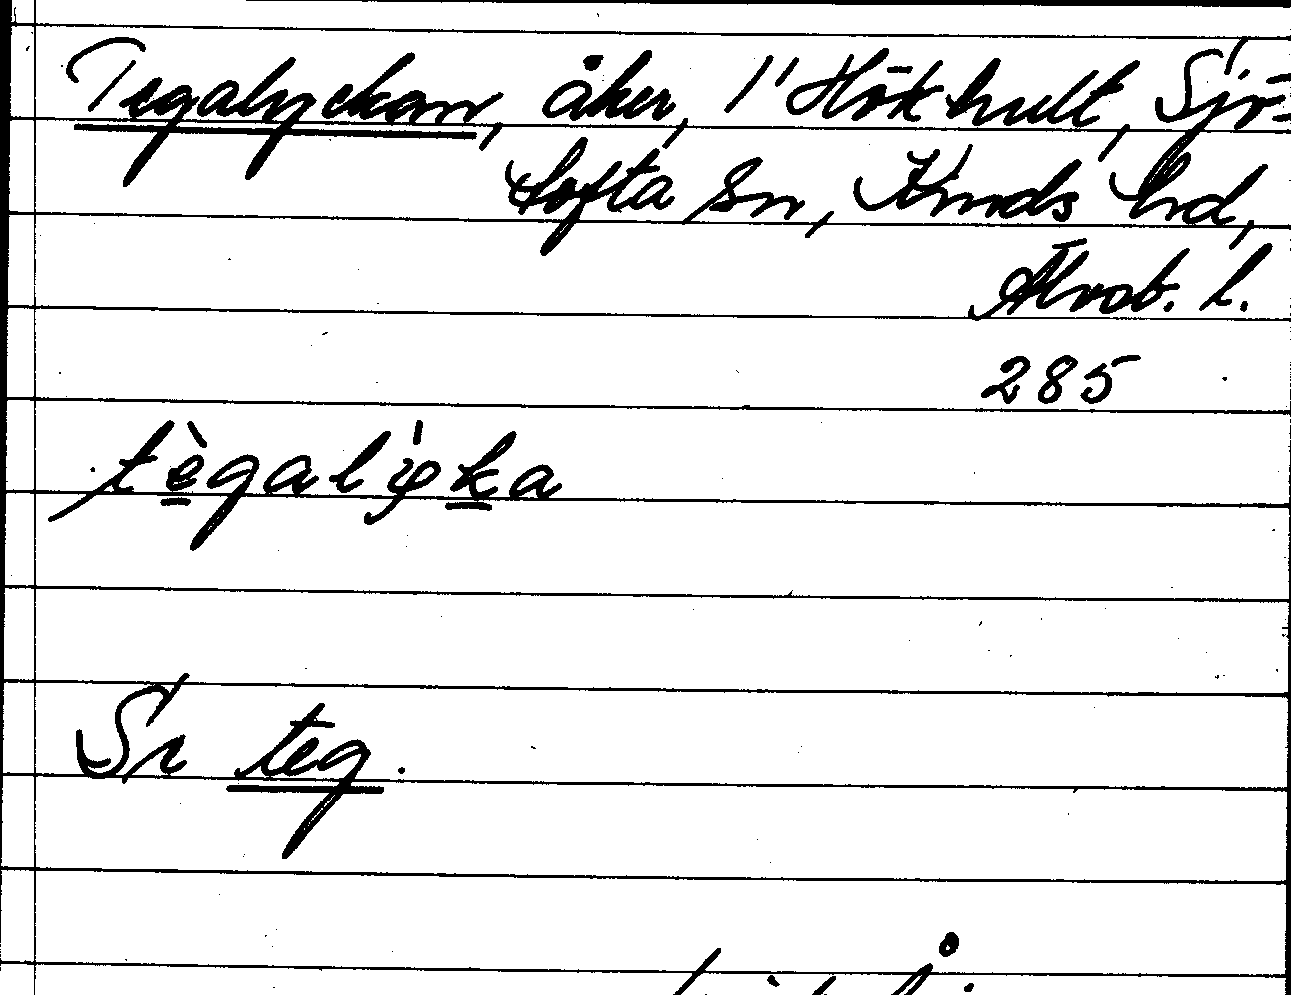 Tegalyckan, åker, 1/1 Hökhult, Sjö-
tofta sn, Kinds hd,
Älvsb. l.
285
tègalyka
Sr teg.